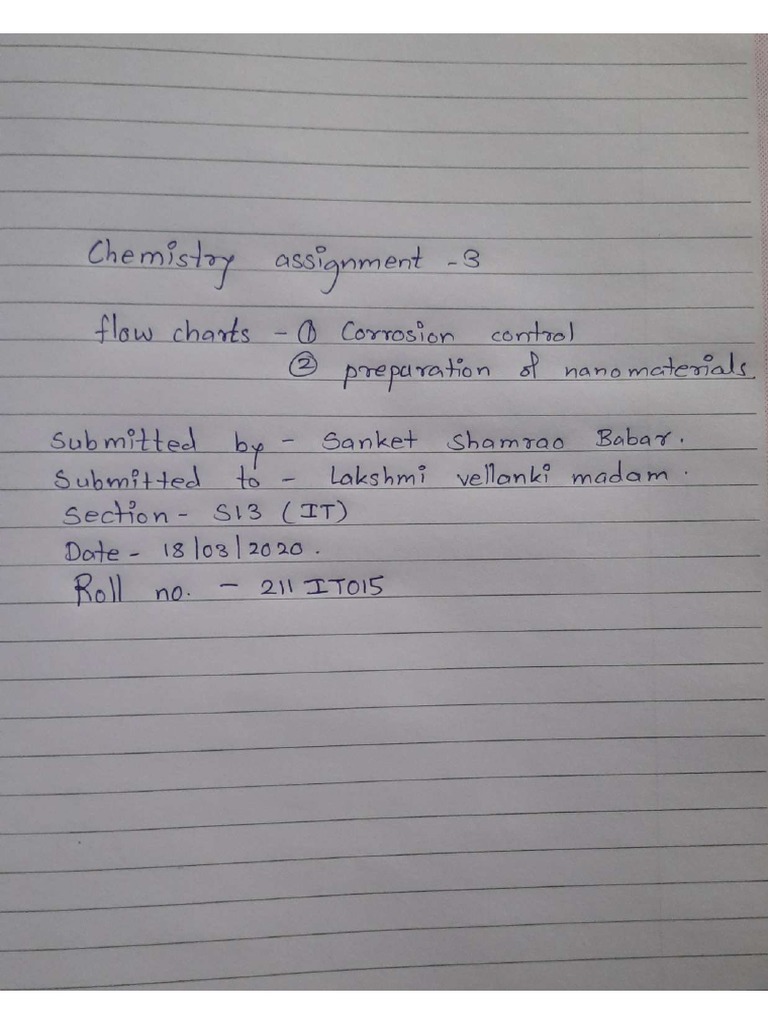 Chemistry assignment - 3
flow charts - ① Corrosion control
② preparation of nanomaterials
Submitted by - Sanket Shamrao Babar.
Submitted to - Lakshmi vellanki madam.
Section - S13 (IT)
Date - 18/03/2020.
Roll no. - 211IT015